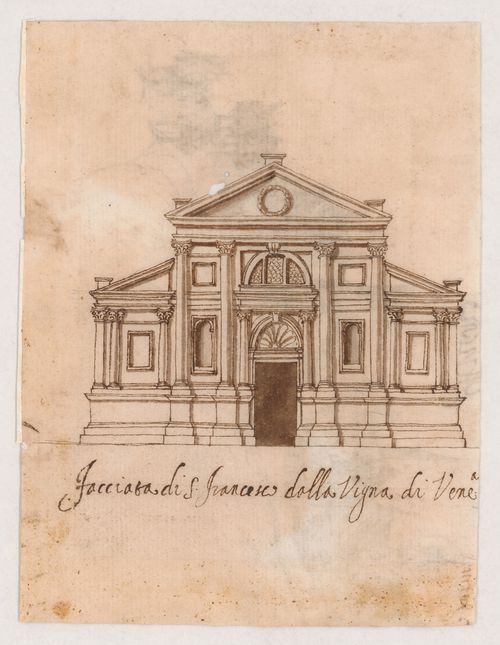 Facciata di S. Francesc dalla Vigna di Venẽᵃ